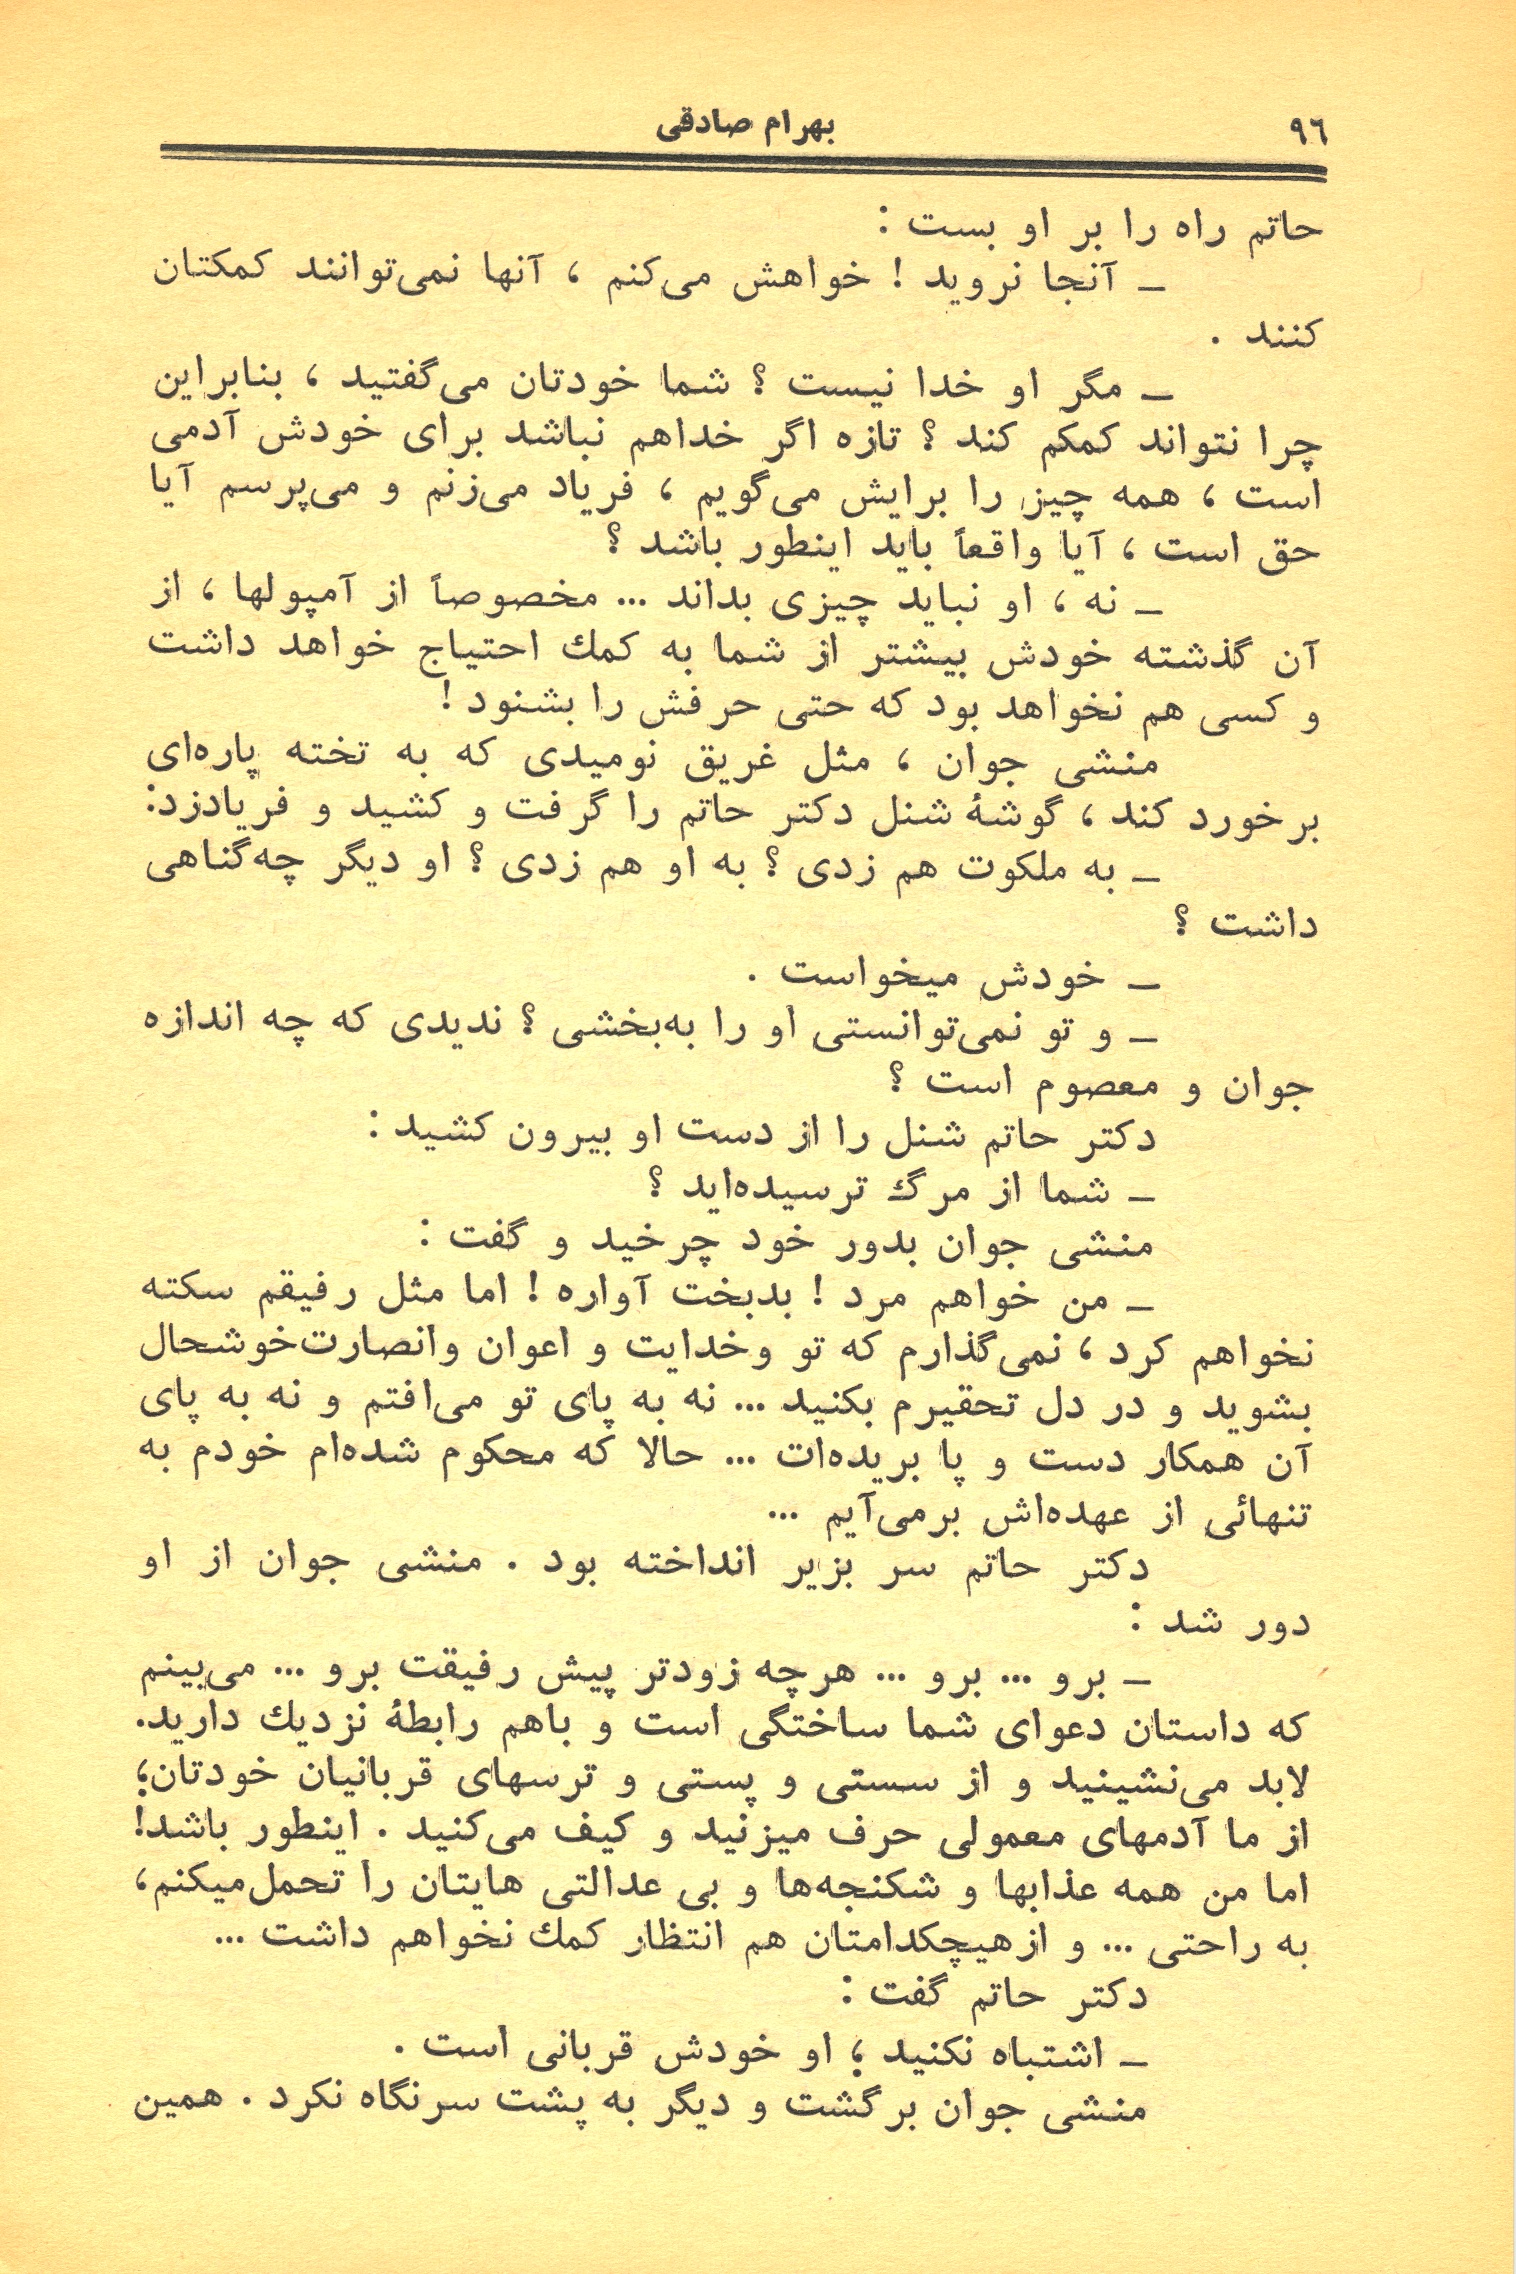 ۹۶
بهرام صادقی
حاتم راه را بر او بست :
ـ آنجا نروید ! خواهش می‌کنم ، آنها نمی‌توانند کمکتان
کنند .
ـ مگر او خدا نیست ؟ شما خودتان می‌گفتید ، بنابراین
چرا نتواند کمکم کند ؟ تازه اگر خداهم نباشد برای خودش آدمی
است ، همه چیز را برایش می‌گویم ، فریاد می‌زنم و می‌پرسم آیا
حق است ، آیا واقعاً باید اینطور باشد ؟
ـ نه ، او نباید چیزی بداند ... مخصوصاً از آمپولها ، از
آن گذشته خودش بیشتر از شما به کمك احتیاج خواهد داشت
و کسی هم نخواهد بود که حتی حرفش را بشنود !
منشی جوان ، مثل غریق نومیدی که به تخته پاره‌ای
برخورد کند ، گوشهٔ شنل دکتر حاتم را گرفت و کشید و فریادزد:
ـ به ملکوت هم زدی ؟ به او هم زدی ؟ او دیگر چه‌گناهی
داشت ؟
ـ خودش میخواست .
ـ و تو نمی‌توانستی او را به‌بخشی ؟ ندیدی که چه اندازه
جوان و معصوم است ؟
دکتر حاتم شنل را از دست او بیرون کشید :
ـ شما از مرگ ترسیده‌اید ؟
منشی جوان بدور خود چرخید و گفت :
ـ من خواهم مرد ! بدبخت آواره ! اما مثل رفیقم سکته
نخواهم کرد ، نمی‌گذارم که تو وخدایت و اعوان وانصارت‌خوشحال
بشوید و در دل تحقیرم بکنید ... نه به پای تو می‌افتم و نه به پای
آن همکار دست و پا بریده‌ات ... حالا که محکوم شده‌ام خودم به
تنهائی از عهده‌اش برمی‌آیم ...
دکتر حاتم سر بزیر انداخته بود . منشی جوان از او
دور شد :
ـ برو ... برو ... هرچه زودتر پیش رفیقت برو ... می‌بینم
که داستان دعوای شما ساختگی است و باهم رابطهٔ نزدیك دارید.
لابد می‌نشینید و از سستی و پستی و ترسهای قربانیان خودتان؛
از ما آدمهای معمولی حرف میزنید و کیف می‌کنید . اینطور باشد!
اما من همه عذابها و شکنجه‌ها و بی عدالتی هایتان را تحمل‌میکنم،
به راحتی ... و ازهیچکدامتان هم انتظار کمك نخواهم داشت ...
دکتر حاتم گفت :
ـ اشتباه نکنید ؛ او خودش قربانی است .
منشی جوان برگشت و دیگر به پشت سرنگاه نکرد . همین